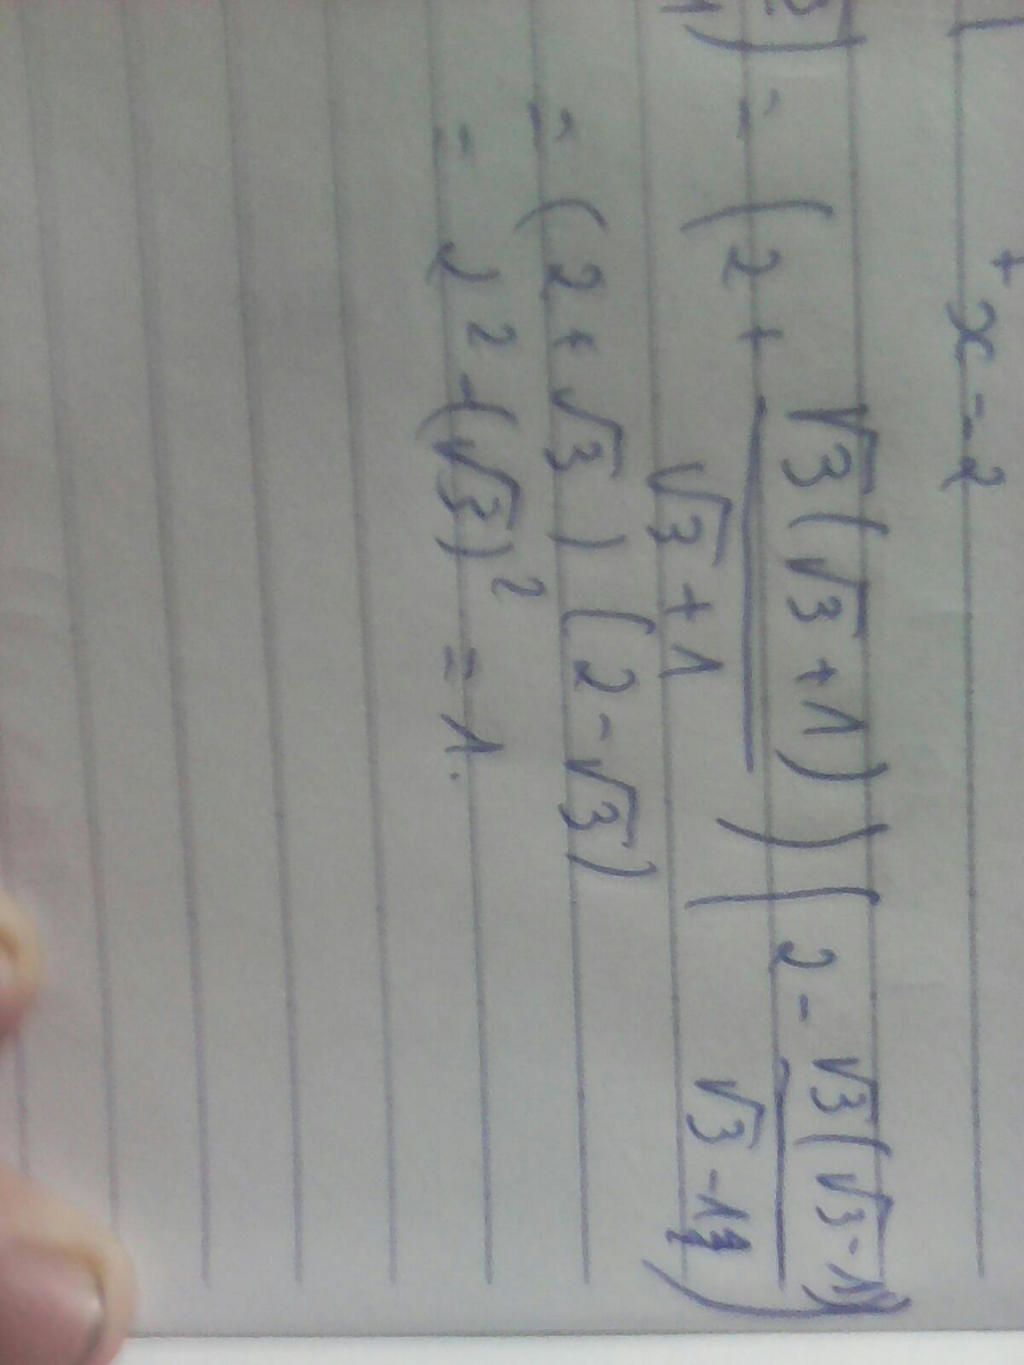 + x - 2
= (2 + √3(√3 + 1) / √3 + 1) (2 - √3(√3 - 1) / √3 - 1)
= (2 + √3) (2 - √3)
= 2² - (√3)² = 1.